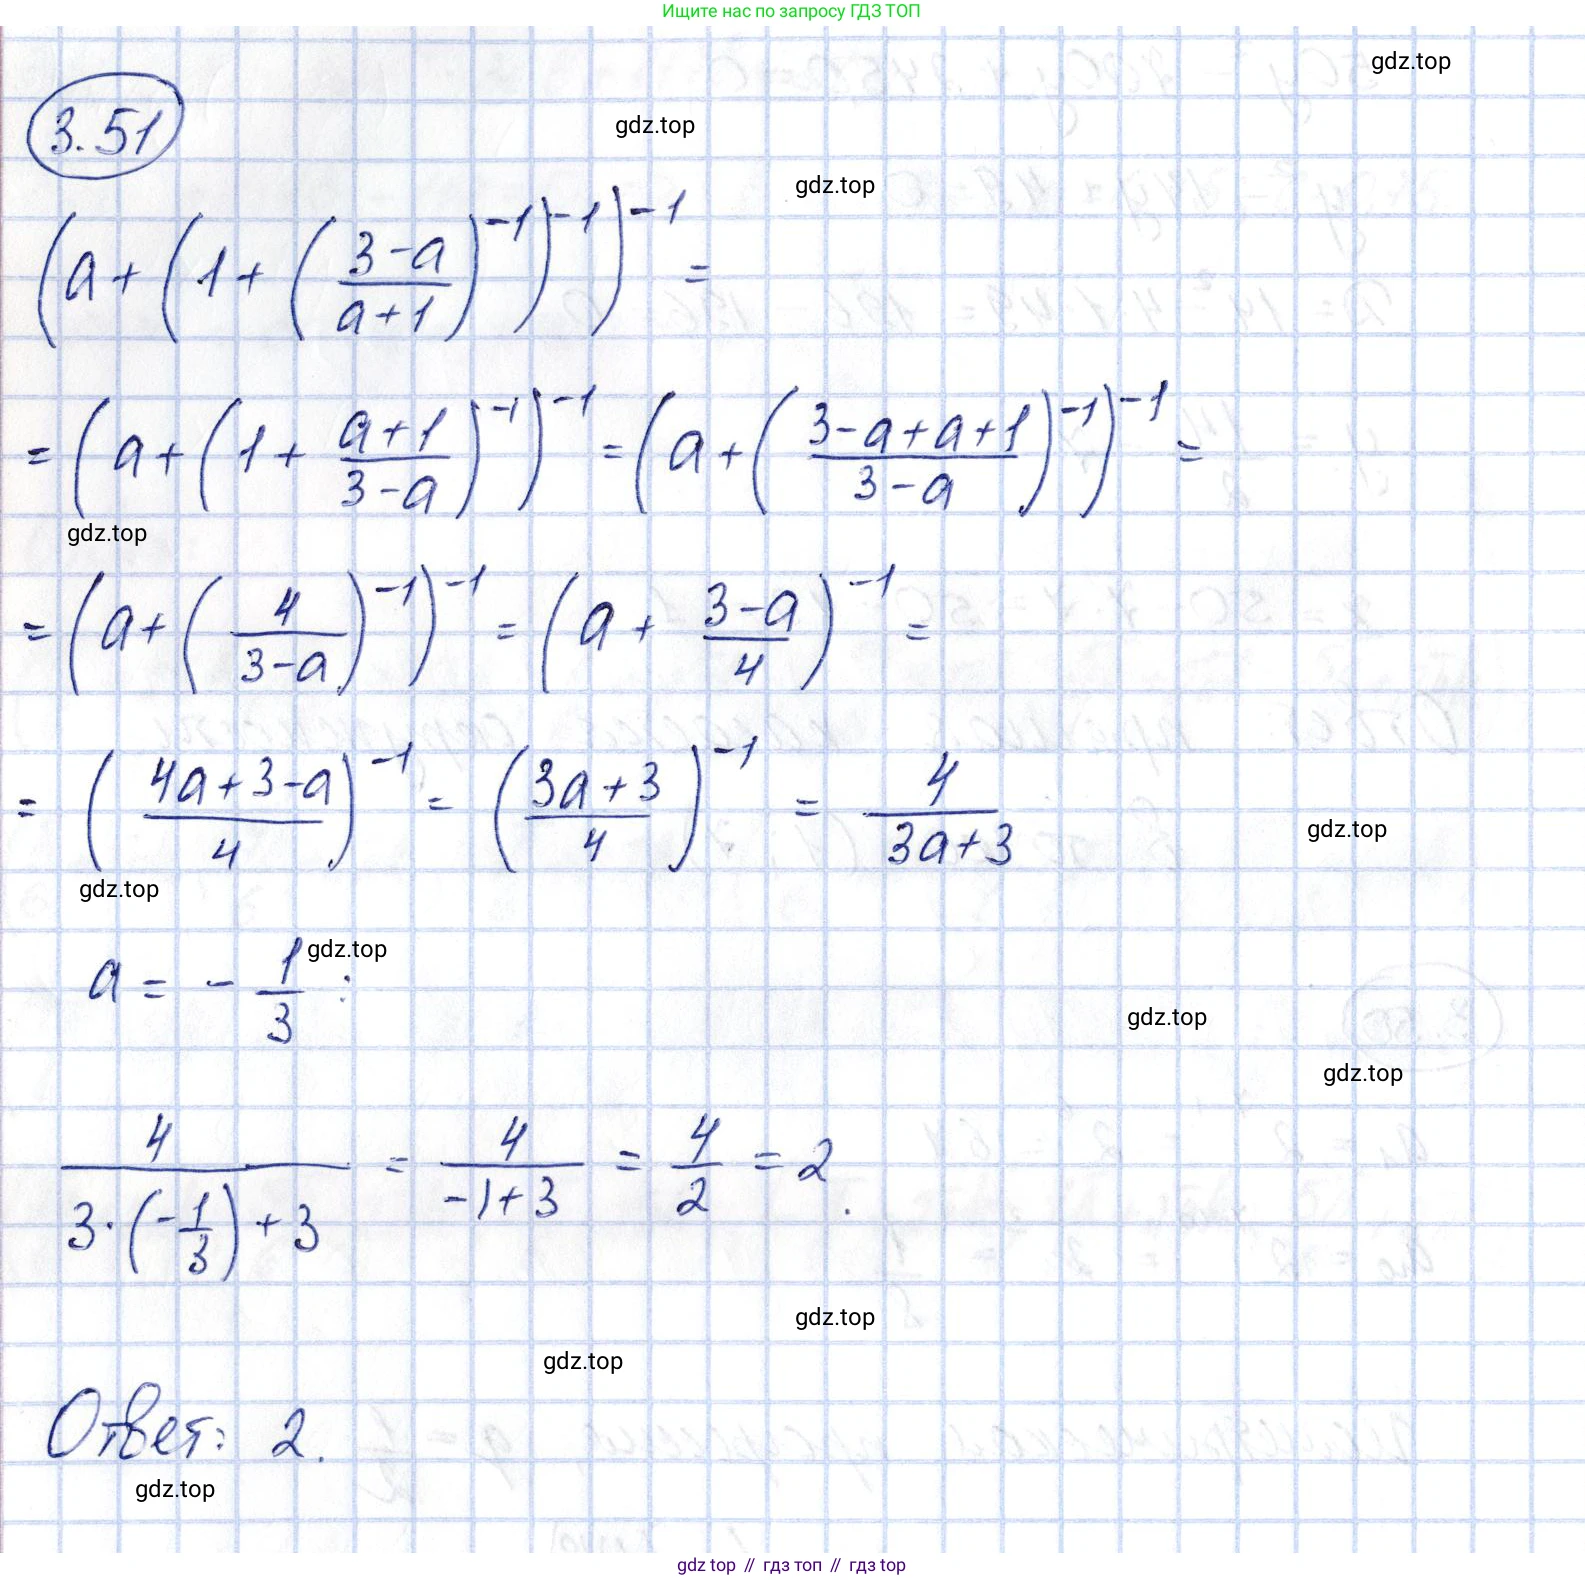 Ищите нас по запросу ГДЗ ТОП
gdz.top
3.51
gdz.top
gdz.top
(a+(1+((3-a)/(a+1))^-1)^-1)^-1 =
= (a+(1+(a+1)/(3-a))^-1)^-1 = (a+((3-a+a+1)/(3-a))^-1)^-1 =
gdz.top
= (a+(4/(3-a))^-1)^-1 = (a+(3-a)/4)^-1 =
= ((4a+3-a)/4)^-1 = ((3a+3)/4)^-1 = 4/(3a+3)
gdz.top
gdz.top
gdz.top
a = -1/3 :
gdz.top
gdz.top
4/(3·(-1/3)+3) = 4/(-1+3) = 4/2 = 2.
gdz.top
gdz.top
Ответ: 2.
gdz.top
gdz top // гдз топ // гдз top